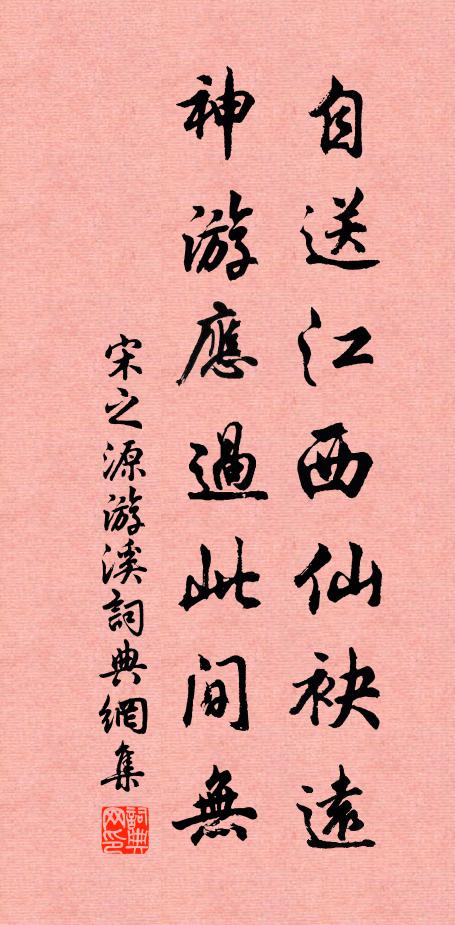 自送江西仙袂遠
神游應過此間無
宋之源游溪詞典網集
詞典网印